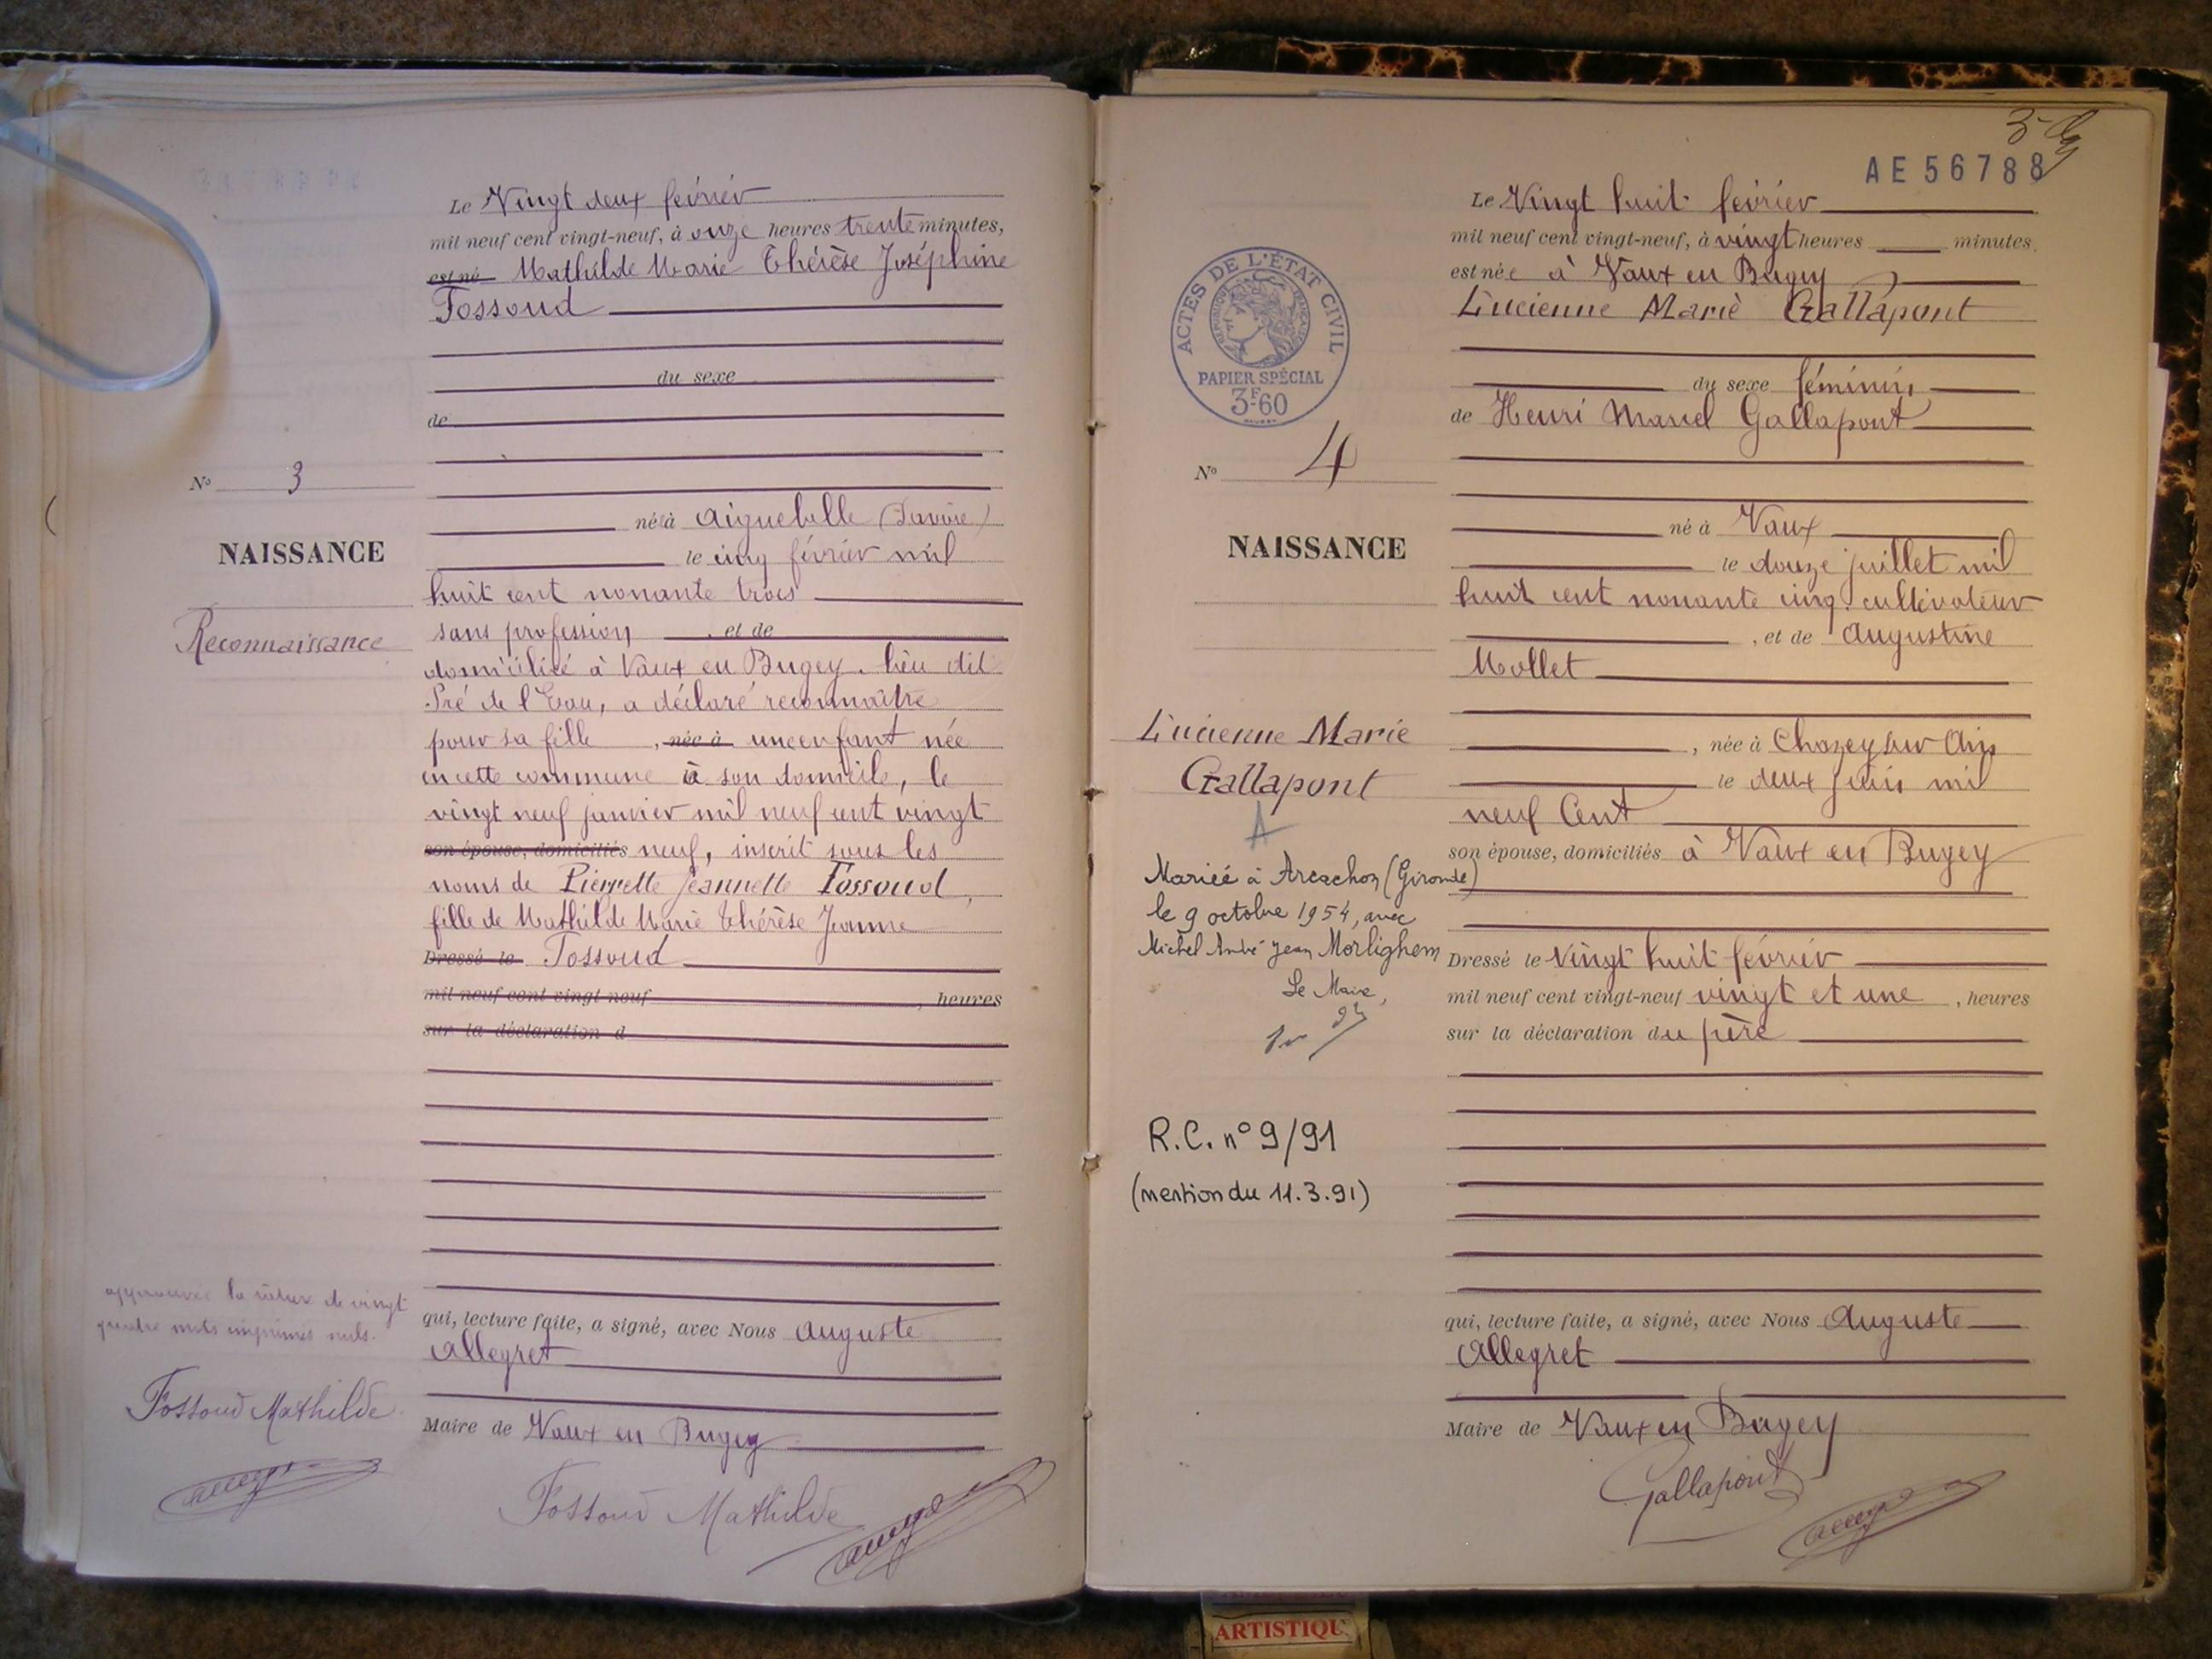 Le Vingt deux février
mil neuf cent vingt-neuf, à onze heures trente minutes,
est né Mathilde Marie Thérèse Joséphine
Fossoud
du sexe
de
N° 3
née à Aiguebelle (Savoie)
NAISSANCE
le cinq février mil
huit cent nonante trois
Reconnaissance
sans profession, et de
domicilié à Vaux en Bugey. lieu dit
Pré de l'Eau, a déclaré reconnaître
pour sa fille , née à une enfant née
en cette commune à son domicile, le
vingt neuf janvier mil neuf cent vingt
son épouse, domiciliés neuf, inscrit sous les
noms de Pierrette Jeannette Fossoud,
fille de Mathilde Marie Thérèse Jeanne
Dressé le Fossoud
mil neuf cent vingt-neuf , heures
sur la déclaration d
approuvée la rature de vingt
mots imprimés nuls.
qui, lecture faite, a signé, avec Nous Auguste
Allegret
Fossoud Mathilde
Maire de Vaux en Bugey
Fossoud Mathilde
3
AE56788
Le Vingt huit février
mil neuf cent vingt-neuf, à vingt heures minutes,
est née à Vaux en Bugey
Lucienne Marie Gallapont
ACTES DE L'ÉTAT CIVIL
RÉPUBLIQUE FRANÇAISE
PAPIER SPÉCIAL
3F60
du sexe féminin
de Henri Marcel Gallapont
N° 4
né à Vaux
NAISSANCE
le douze juillet mil
huit cent nonante cinq. cultivateur
, et de Augustine
Mollet
Lucienne Marie
Gallapont
, née à Chazey sur Ain
le deux juin mil
neuf Cent
A
son épouse, domiciliés à Vaux en Bugey
Mariée à Arcachon (Gironde)
le 9 octobre 1954, avec
Michel André Jean Morlighem
Le Maire,
Dressé le Vingt huit février
mil neuf cent vingt-neuf vingt et une , heures
sur la déclaration du père
R.C. n° 9/91
(mention du 11.3.91)
qui, lecture faite, a signé, avec Nous Auguste
Allegret
Maire de Vaux en Bugey
Gallapont
ARTISTIQU